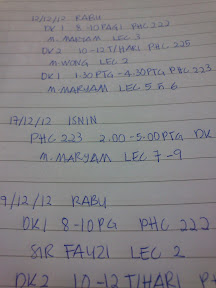 12/12/12 RABU
DK1 8-10PAGI PHC 222
M. MARYAM LEC 3
DK2 10-12T/HARI PHC 225
M. WONG LEC 2
DK1 1.30PTG-4.30PTG PHC 223
M. MARYAM LEC 5 & 6
17/12/12 ISNIN
PHC 223 2.00-5.00PTG DK
M. MARYAM LEC 7-9
9/12/12 RABU
DK1 8-10PG PHC 222
SIR FAUZI LEC 2
DK2 10-12T/HARI PH